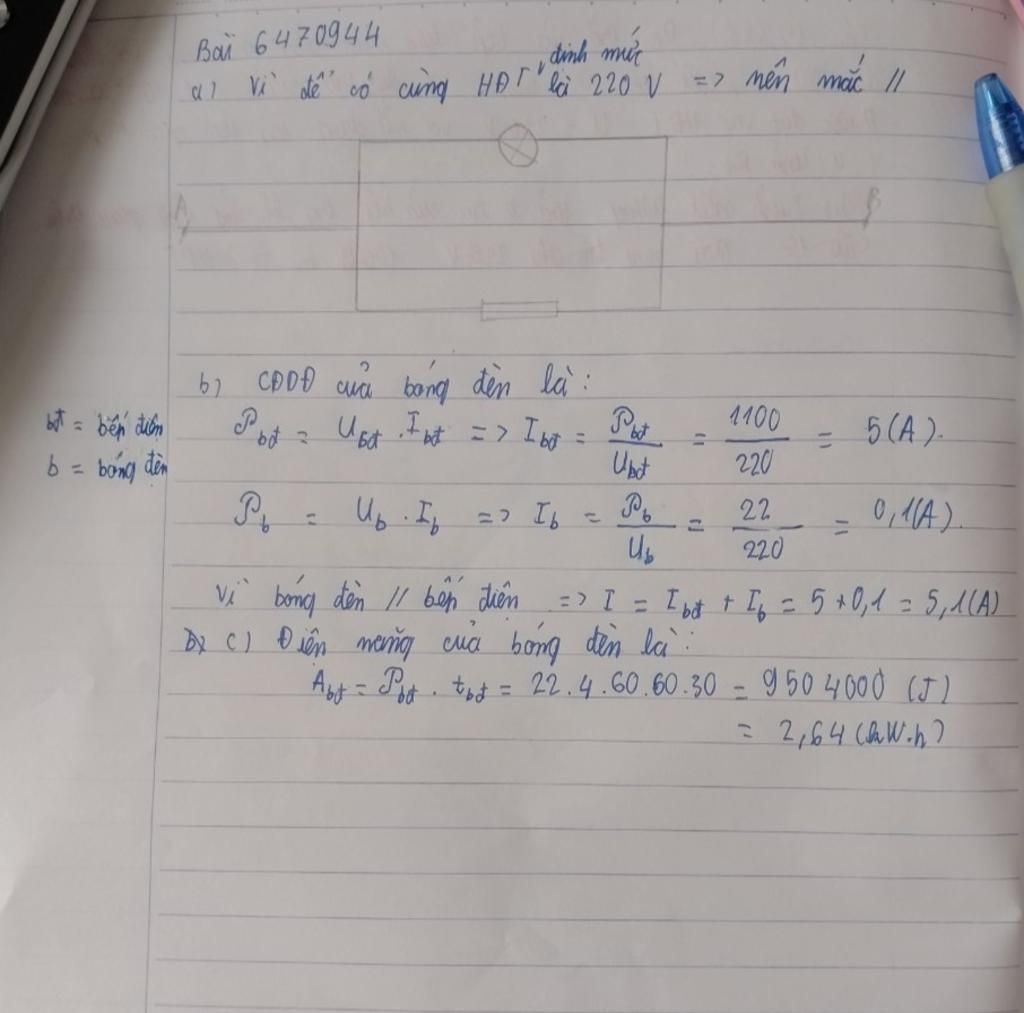 Bài 6470944
a) Vì để có cùng HĐT định mức là 220 V => nên mắc //
A
B
b) CĐDĐ của bóng đèn là:
bđ = bếp điện
b = bóng đèn
P_bđ = U_bđ . I_bđ => I_bđ = P_bđ / U_bđ = 1100 / 220 = 5(A).
P_b = U_b . I_b => I_b = P_b / U_b = 22 / 220 = 0,1(A).
Vì bóng đèn // bếp điện => I = I_bđ + I_b = 5 + 0,1 = 5,1(A)
c) Điện năng của bóng đèn là:
A_bđ = P_bđ . t_bđ = 22 . 4 . 60 . 60 . 30 = 9504000 (J)
= 2,64 (kW.h)